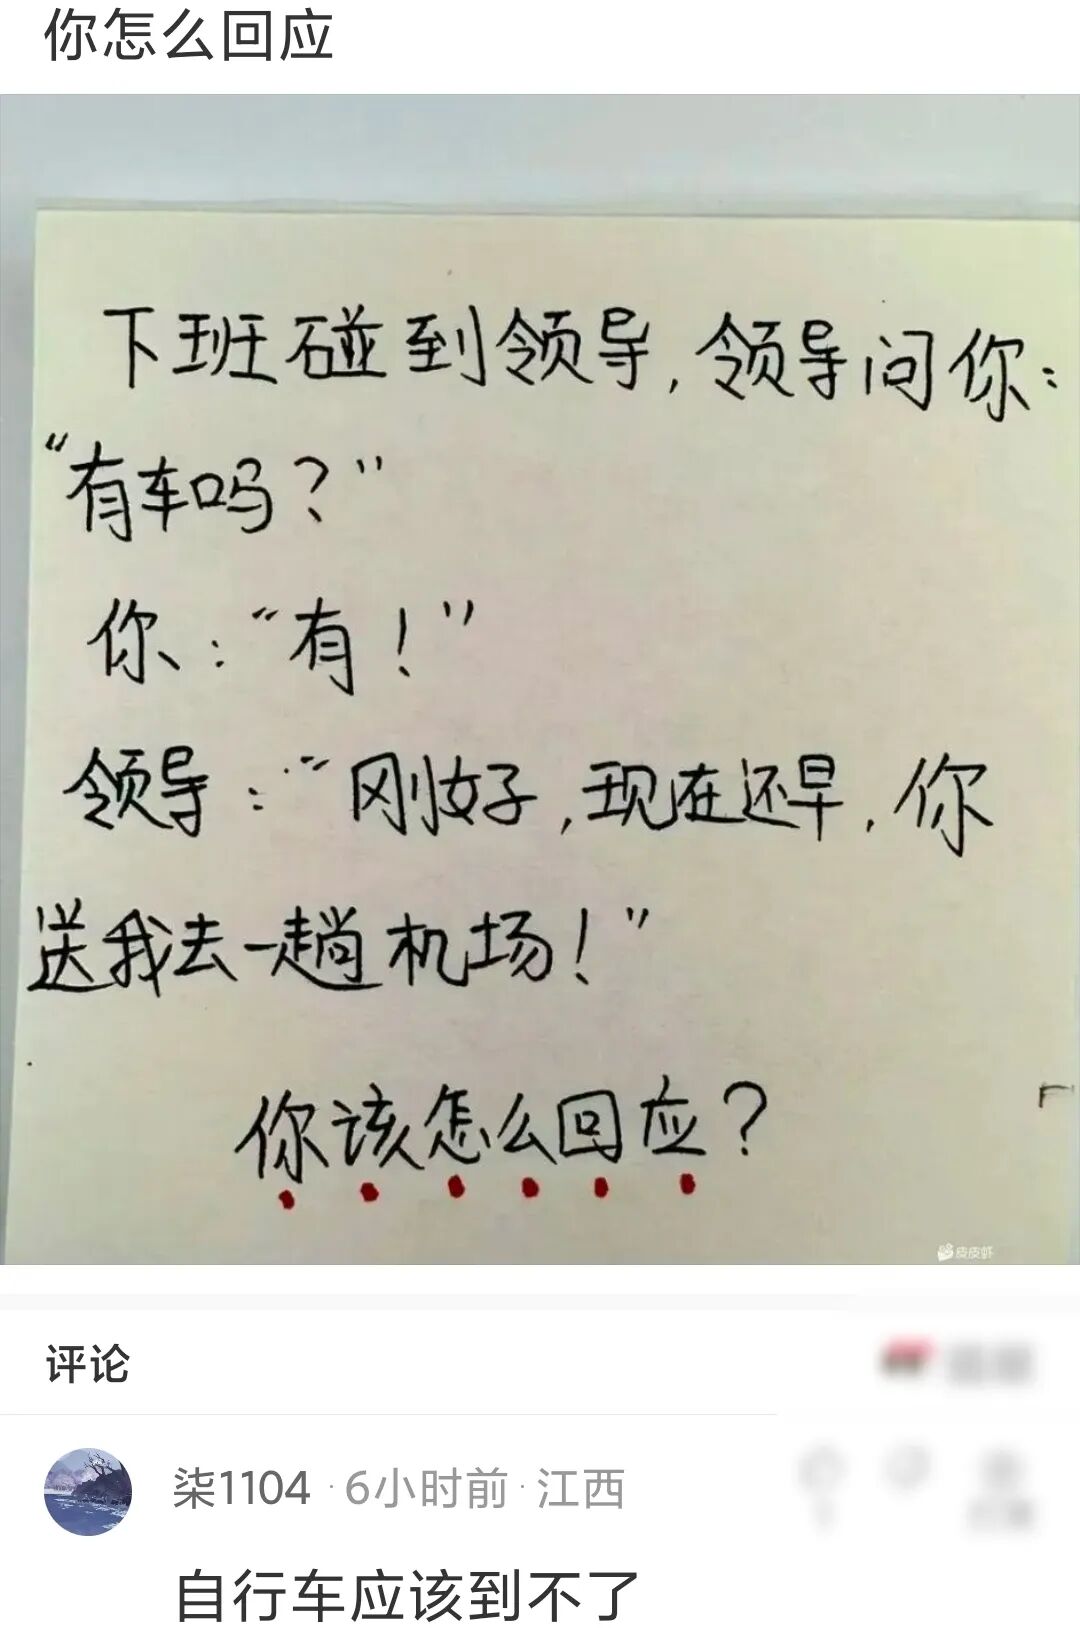 你怎么回应
下班碰到领导,领导问你:
“有车吗?”
你:“有!”
领导:“刚好,现在还早,你
送我去一趟机场!”
你该怎么回应?
皮皮虾
评论
柒1104 · 6小时前 · 江西
自行车应该到不了